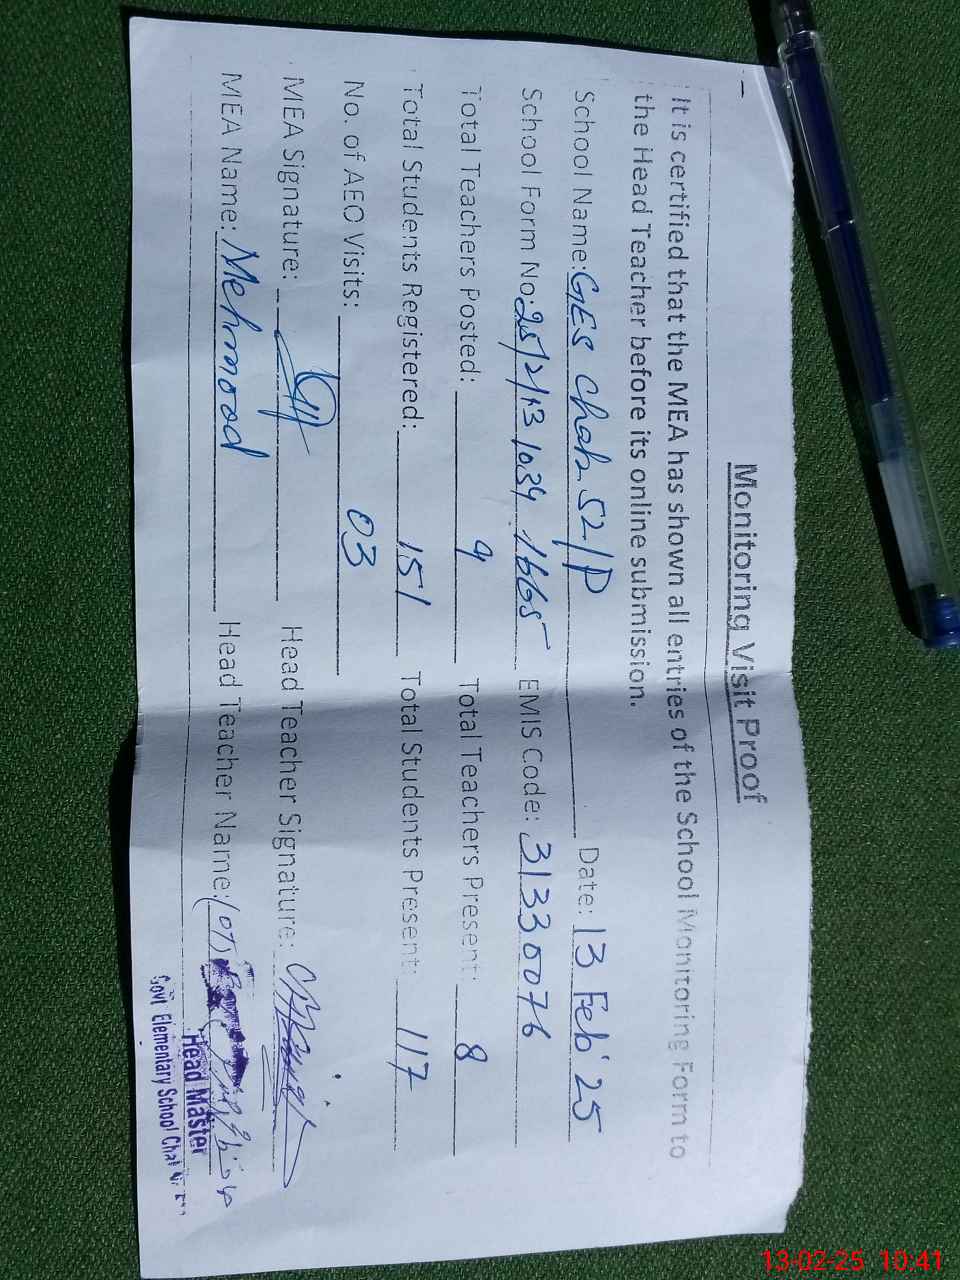 Monitoring Visit Proof
It is certified that the MEA has shown all entries of the School Monitoring Form to
the Head Teacher before its online submission.
School Name: GES Chah 52/P Date: 13 Feb' 25
School Form No: EMIS Code: 31330076
Total Teachers Posted: 9 Total Teachers Present: 8
Total Students Registered: 151 Total Students Present: 117
No. of AEO Visits: 03
MEA Signature: Head Teacher Signature:
MEA Name: Mehmood Head Teacher Name:
Head Master
Govt Elementary School Chah
13-02-25 10:41